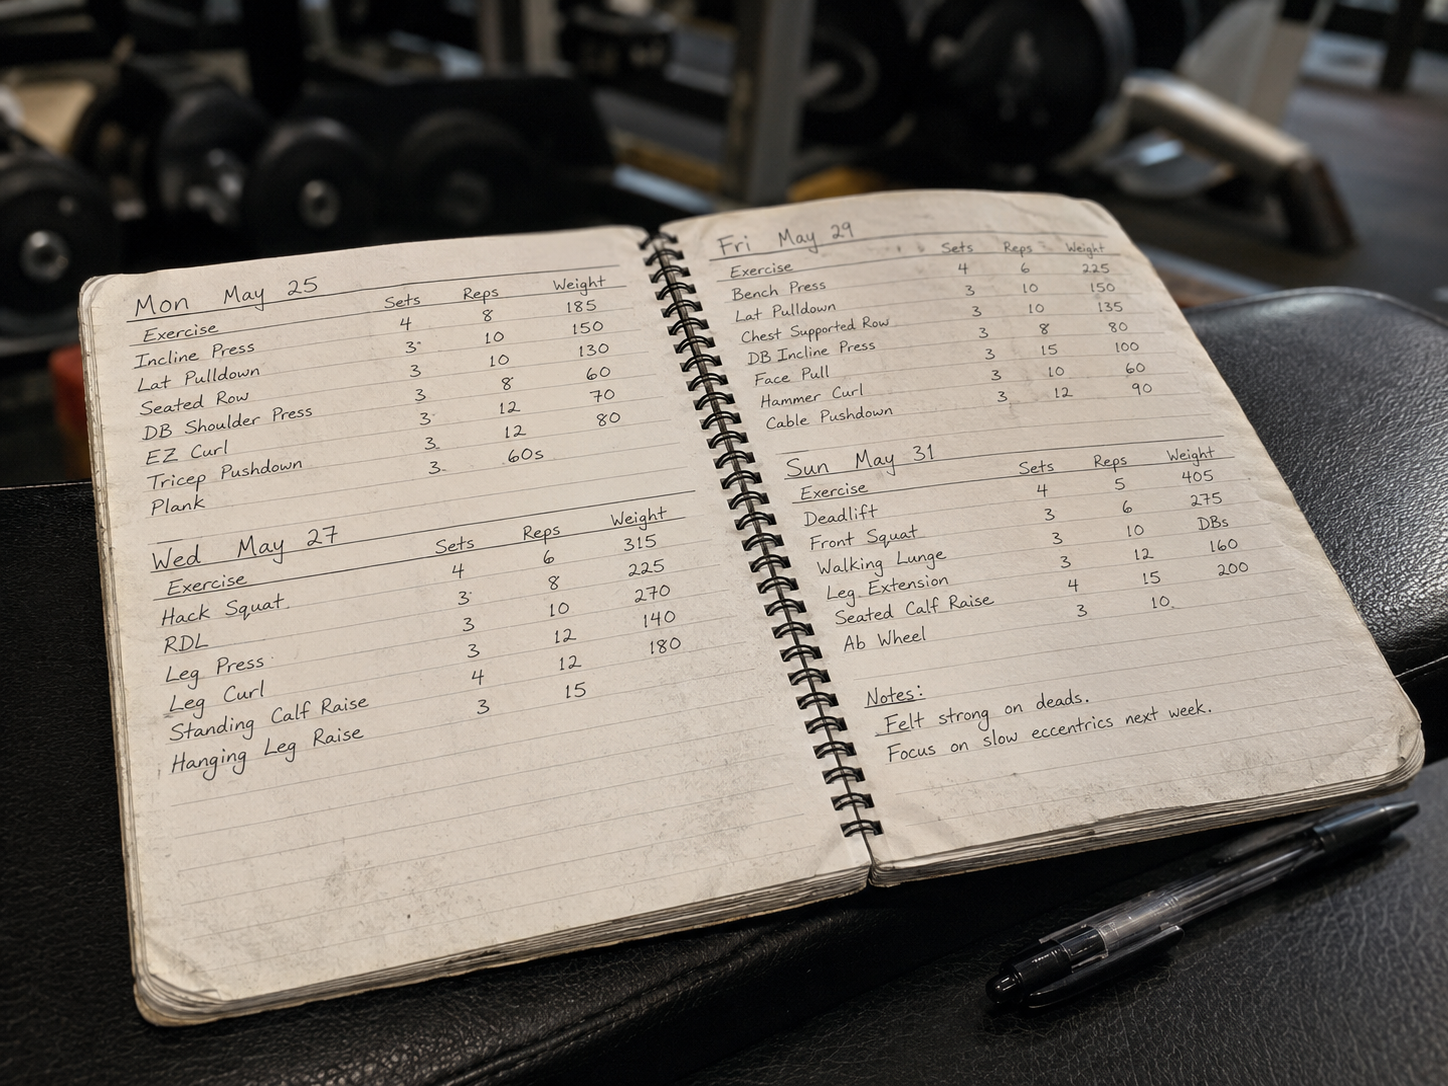 Mon May 25
Exercise Sets Reps Weight
Incline Press 4 8 185
Lat Pulldown 3 10 150
Seated Row 3 10 130
DB Shoulder Press 3 8 60
EZ Curl 3 12 70
Tricep Pushdown 3 12 80
Plank 3 60s
Wed May 27
Exercise Sets Reps Weight
Hack Squat 4 6 315
RDL 3 8 225
Leg Press 3 10 270
Leg Curl 3 12 140
Standing Calf Raise 4 12 180
Hanging Leg Raise 3 15
Fri May 29
Exercise Sets Reps Weight
Bench Press 4 6 225
Lat Pulldown 3 10 150
Chest Supported Row 3 10 135
DB Incline Press 3 8 80
Face Pull 3 15 100
Hammer Curl 3 10 60
Cable Pushdown 3 12 90
Sun May 31
Exercise Sets Reps Weight
Deadlift 4 5 405
Front Squat 3 6 275
Walking Lunge 3 10 DBs
Leg Extension 3 12 160
Seated Calf Raise 4 15 200
Ab Wheel 3 10
Notes:
Felt strong on deads.
Focus on slow eccentrics next week.